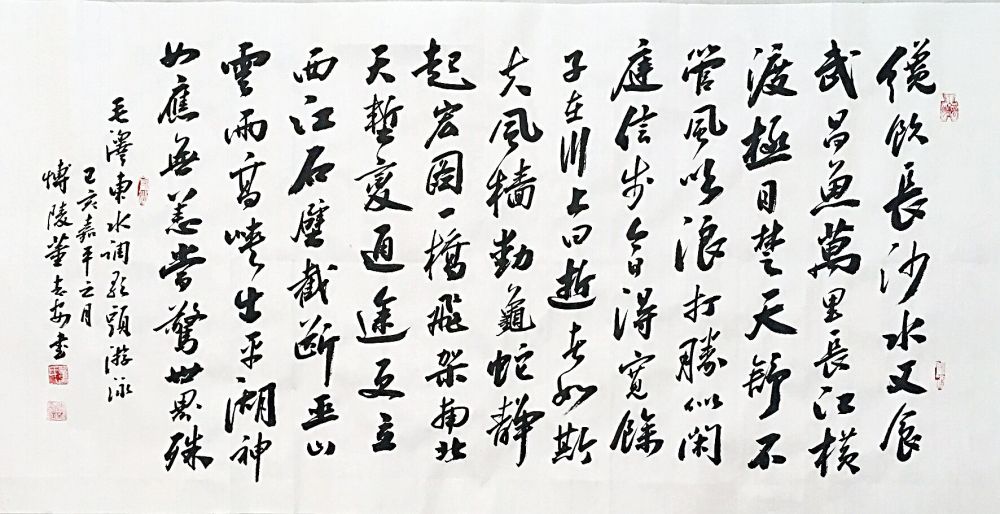 纔飲長沙水又食
武昌魚萬里長江橫
渡極目楚天舒不
管風吹浪打勝似閑
庭信步今日得寬餘
子在川上曰逝者如斯
夫風檣動龜蛇靜
起宏圖一橋飛架南北
天塹變通途更立
西江石壁截斷巫山
雲雨高峽出平湖神
女應無恙當驚世界殊
毛澤東水調歌頭游泳
己亥嘉平之月
博陵董書